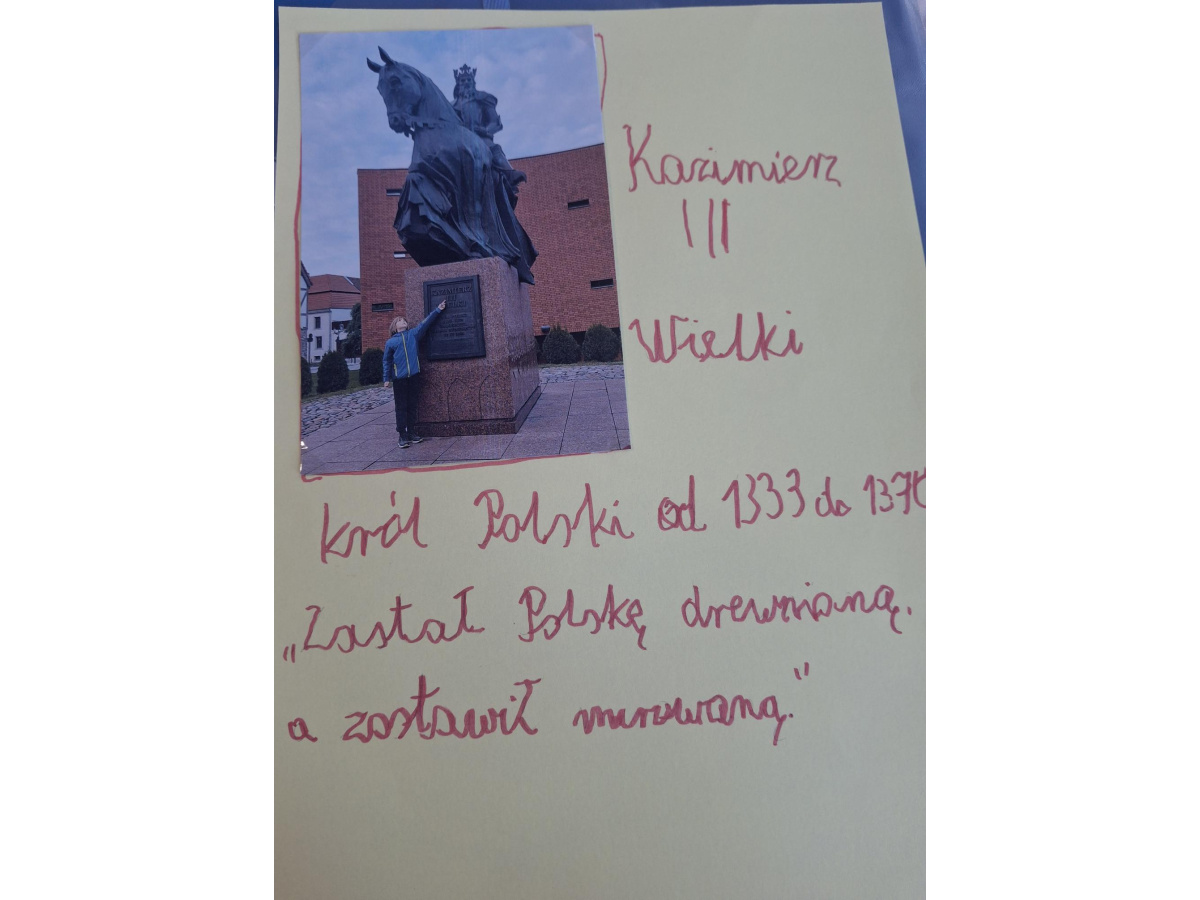 Kazimierz
III
Wielki
król Polski od 1333 do 1370
„Zastał Polskę drewnianą.
a zostawił murowaną."